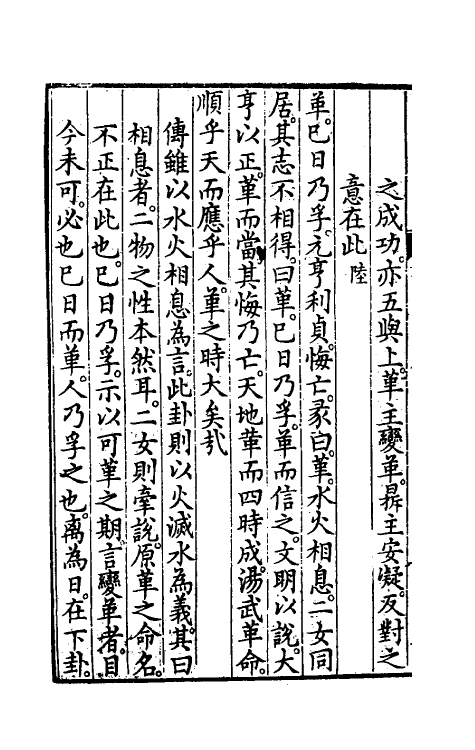 之成功。亦五與上。革主變革。鼎主安凝。反對之
意在此陸
革。巳日乃孚。元亨利貞。悔亡。彖曰。革。水火相息。二女同
居。其志不相得。曰革。巳日乃孚。革而信之。文明以說。大
亨以正。革而當。其悔乃亡。天地革而四時成。湯武革命。
順乎天而應乎人。革之時大矣哉
傳雖以水火相息為言。此卦則以火滅水為義。其曰
相息者。二物之性本然耳。二女則牽說。原革之命名。
不正在此也。巳日乃孚。示以可革之期。言變革者。目
今未可。必也巳日而革。人乃孚之也。离為日。在下卦。